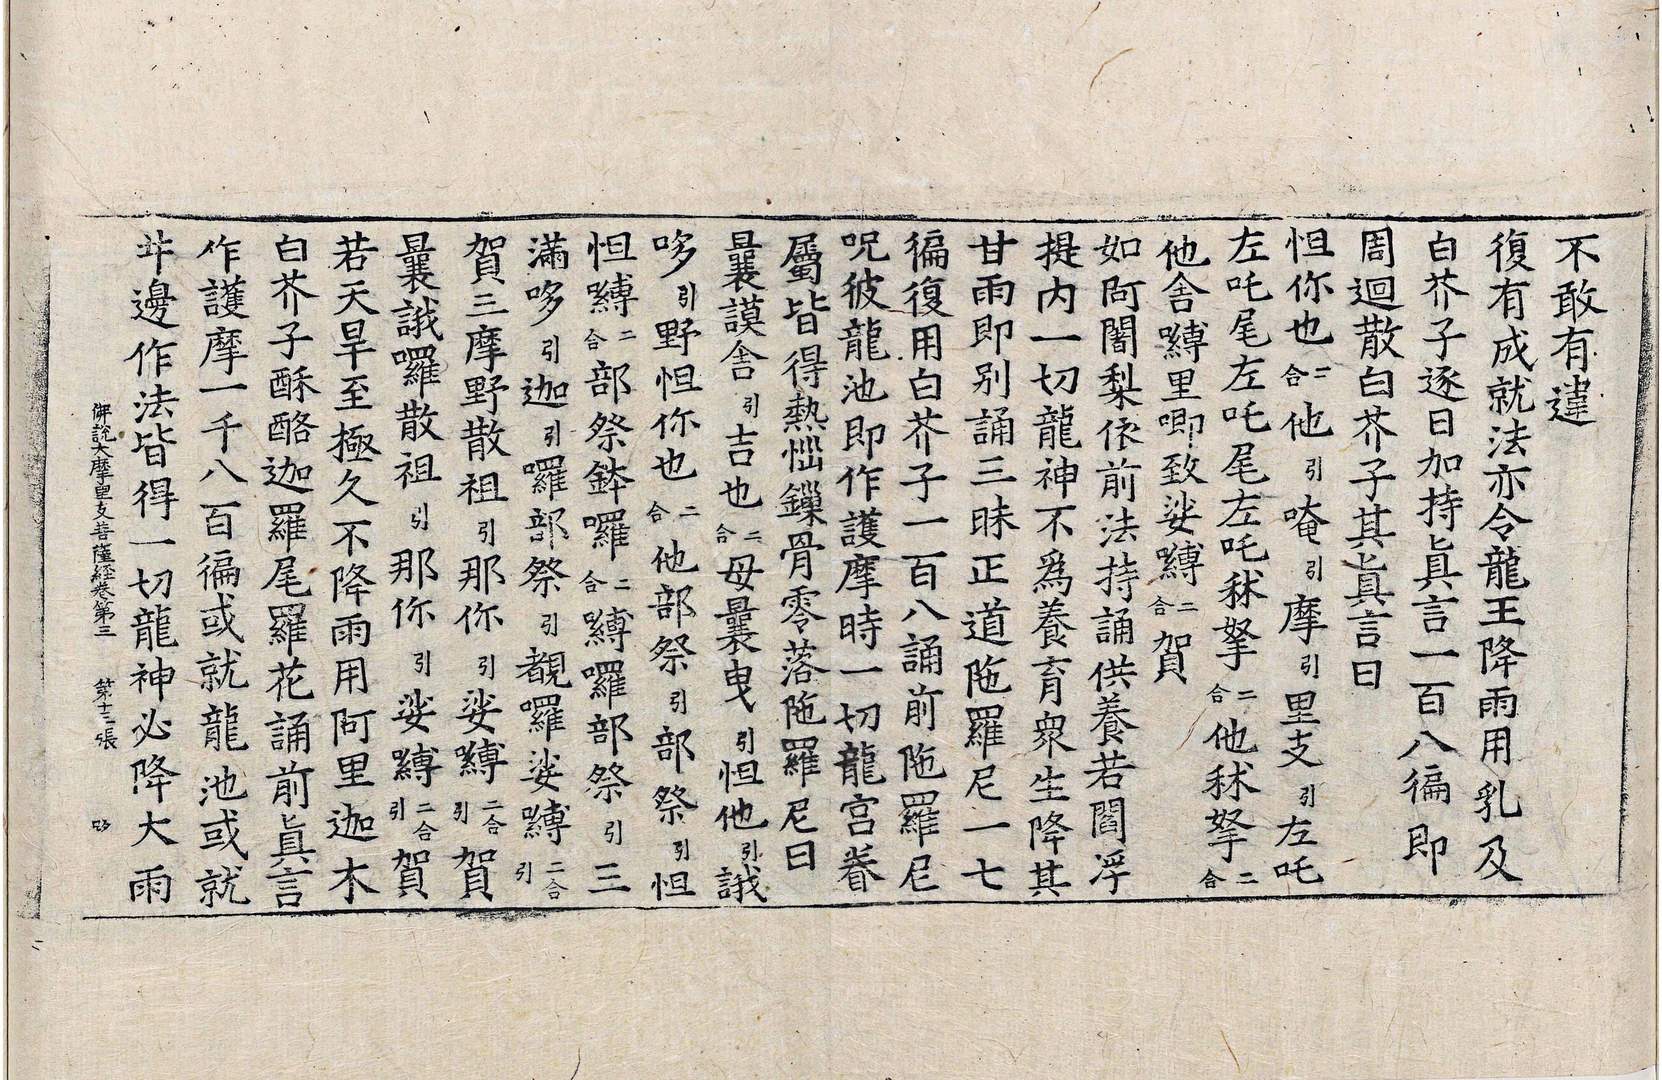 不敢有違
復有成就法亦令龍王降雨用乳及
白芥子逐日加持眞言一百八徧即
周迴散白芥子其眞言曰
怛你也二合他引唵引摩引里支引左吒
左吒尾左吒尾左吒秫拏二合他秫拏二合
他舍嚩里唧致娑嚩二合賀
如阿闍梨依前法持誦供養若閻浮
提內一切龍神不爲養育衆生降其
甘雨即別誦三昧正道陁羅尼一七
徧復用白芥子一百八誦前陁羅尼
呪彼龍池即作護摩時一切龍宮眷
屬皆得熱惱鏁骨零落陁羅尼曰
曩謨舍引吉也二合母曩曳引怛他引誐
哆引野怛你也二合他部祭引部祭引怛
怛嚩二合部祭鉢囉二合嚩囉部祭引三
滿哆引迦引囉部祭引覩囉娑嚩二合引
賀三摩野散祖引那你引娑嚩二合引賀
曩誐囉散祖引那你引娑嚩二合引賀
若天旱至極久不降雨用阿里迦木
白芥子酥酪迦羅尾羅花誦前眞言
作護摩一千八百徧或就龍池或就
井邊作法皆得一切龍神必降大雨
佛說大摩里支菩薩經卷第三 第十三張